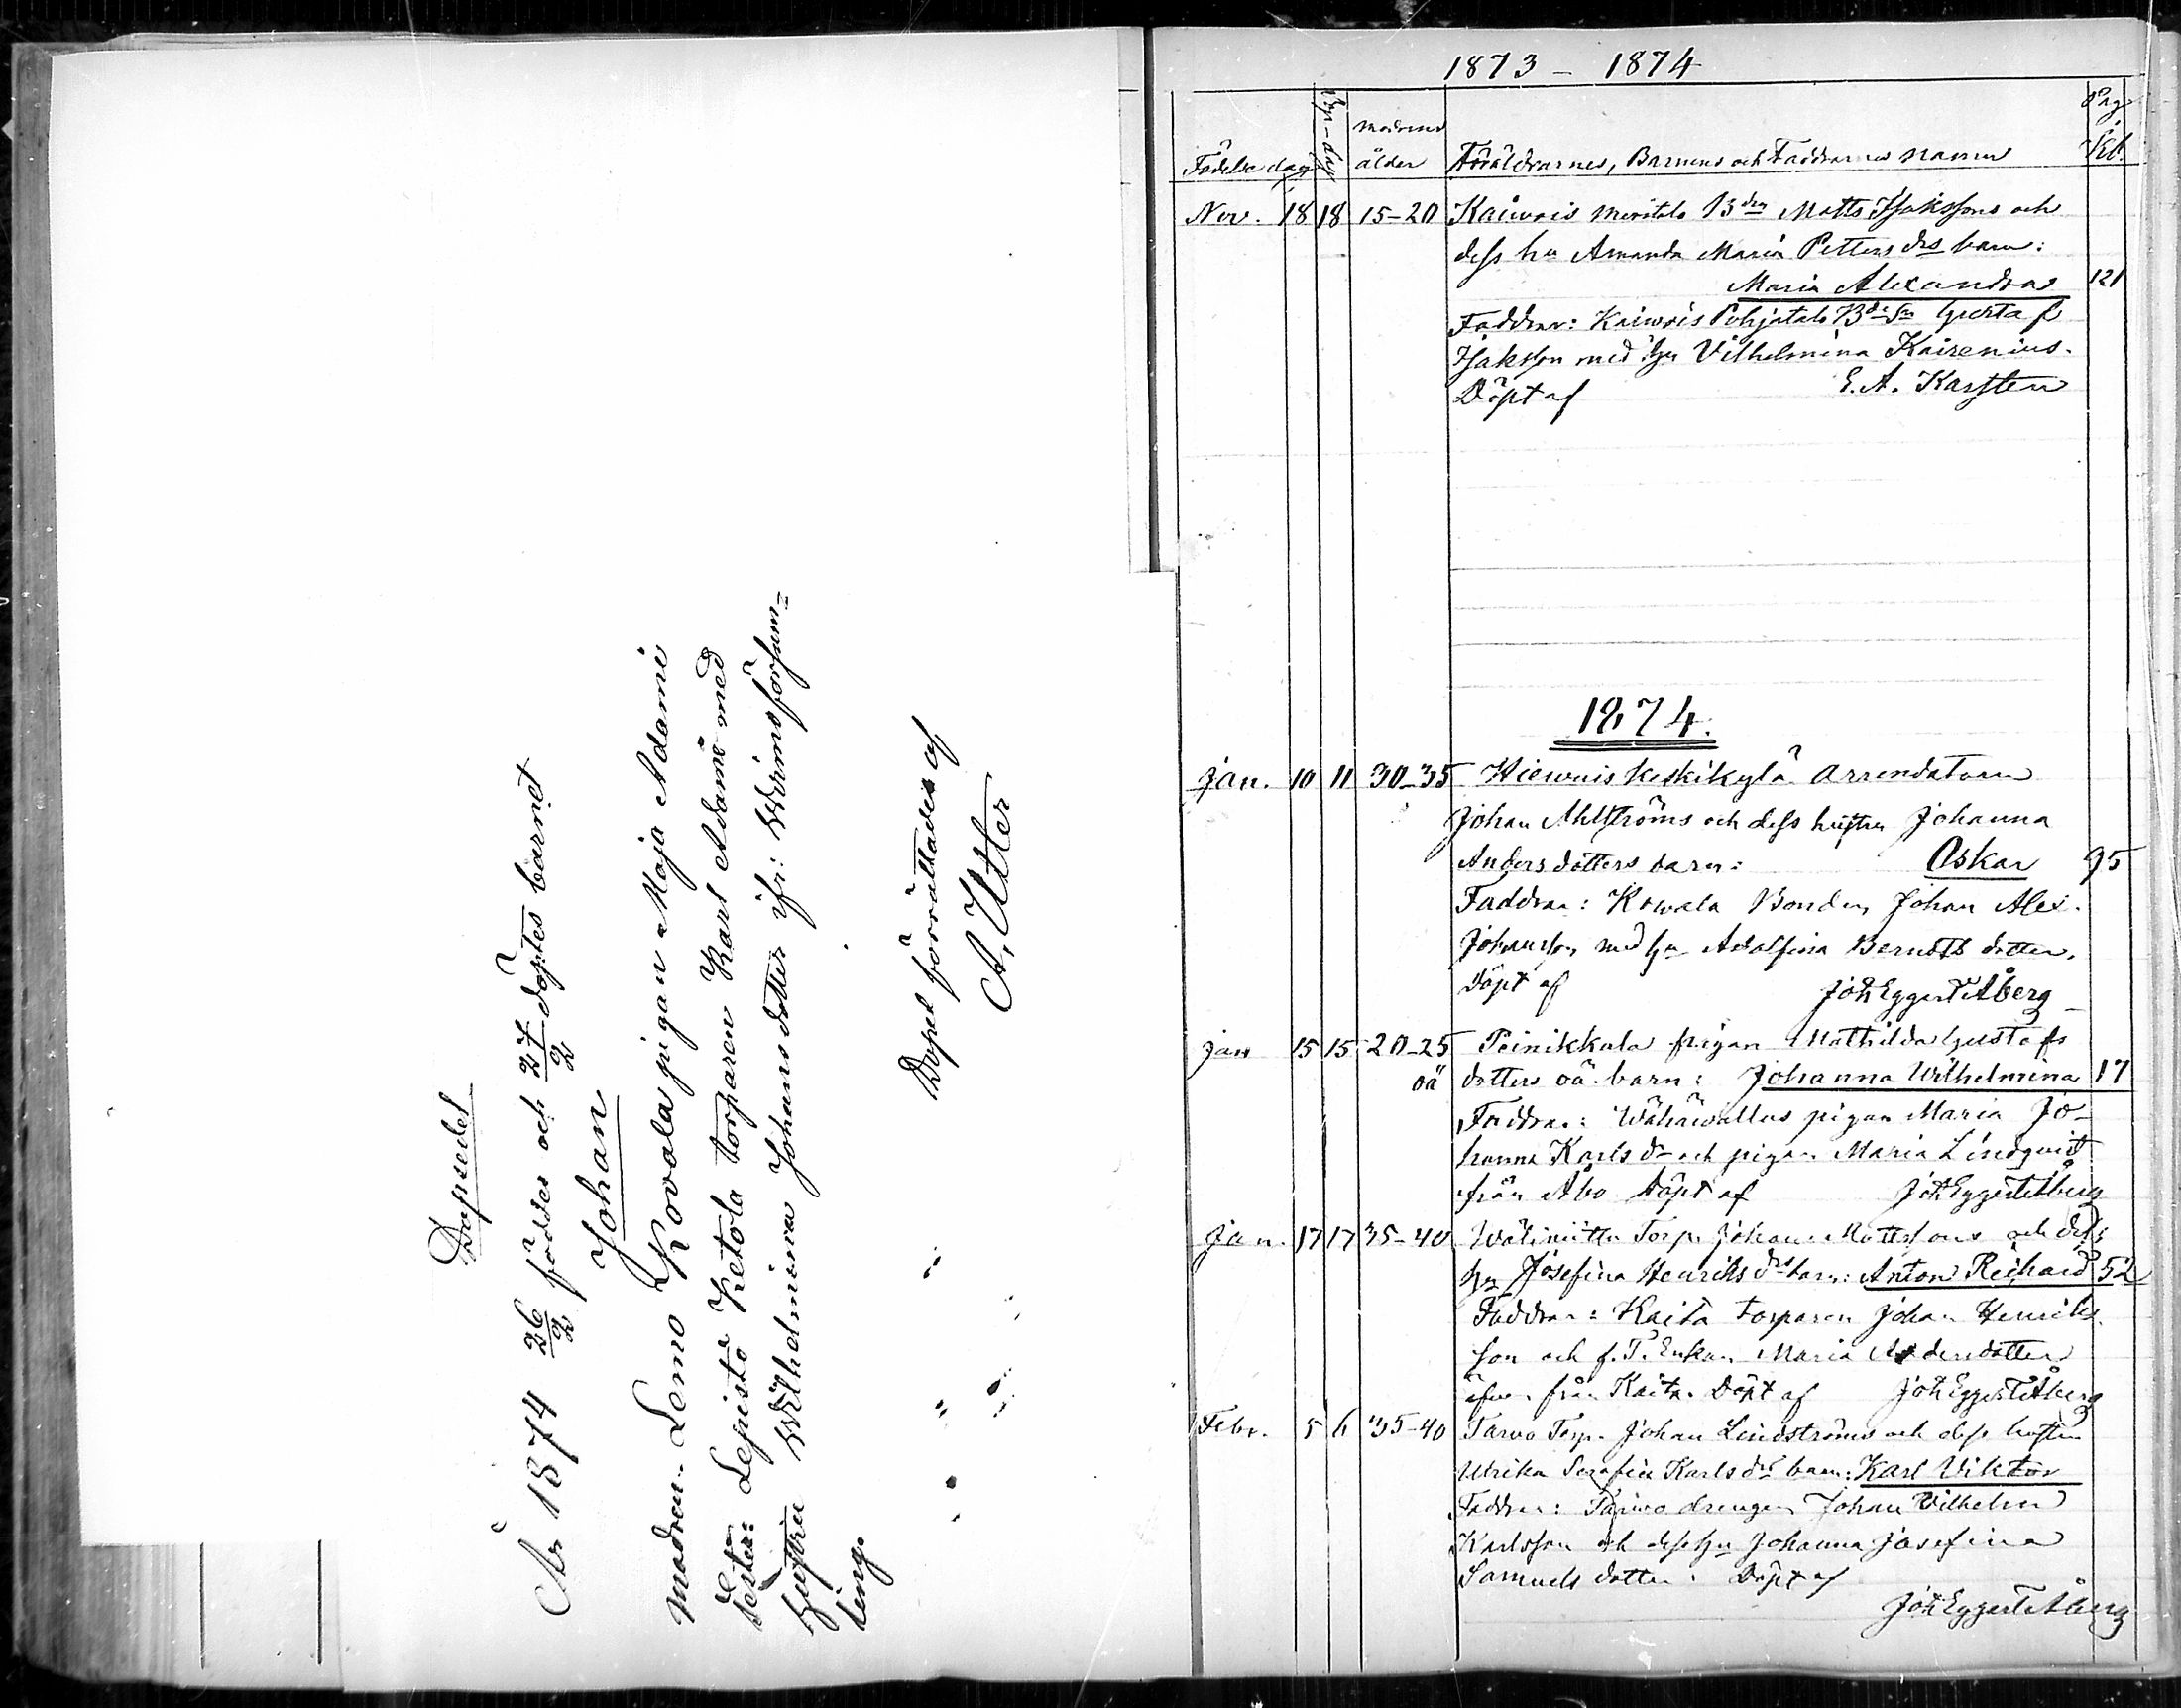 Dopsedel
År 1874 26/2 föddes och 27/2 döptes barnet
Johan
Modren: Lemo Kovala pigan Maja Adami
d:r
Testes: Lepistö Ketola torparen Karl Adami med
hustru Wilhelmina Johansdotter ifr: Wirmo försam=
ling.
Dopet förrättades af
A. Utter
1873 - 1874
Födelse dag
Döp-dag
modrens ålder
Föräldrarnes, Barnens och Faddrarnes namn
Pag. Kb.
Nov. 18 18 15-20 Kaivois Bdn Matts Isakssons och
dess hu Amanda Maria Petters drs barn:
Maria Alexandra 121
Faddrar: Kaivois Pohjatalo Bde Sn Gusta f
Isaksson med hu Vilhelmina Kairenius.
Döpt af E. A. Karsten
1874.
Jan. 10 11 30-35 Hiewois Keskikylä Arrendatorn
Johan Ahlströms och dess hustru Johanna
Anders dotters barn: Oskar 95
Faddrar: Kowala Bonden Johan Alex.
Johansson med hu Adolfina Berndts dotter.
Döpt af Joh Eggert Åberg
Jan 15 15 20-25 Teinikkala pigan Mathilda Gustafs
oä dotters oä. barn: Johanna Wilhelmina 17
Faddrar: Wähäwallus pigan Maria Jo-
hanna Karls dr och pigan Maria Lindqvist
från Åbo Döpt af Joh Eggert Åberg
Jan. 17 17 35-40 Torp. Johan Mattssons och dess
hu Josefina Henriks drs barn: Anton Richard 52
Faddrar: Kaita torparen Johan Henriks
son och f. T. Enkan Maria Andersdotter
äfven från Kaita. Döpt af Joh Eggert Åberg
Febr. 5 6 35-40 Tarvo Torp. Johan Lindströms och dess hustru
Ulrika Serafia Karls drs barn: Karl Viktor
Faddrar: Tarvo drengen Johan Vilhelm
Karlsson och dess hu Johanna Josefina
Samuels dotter: Döpt af
Joh Eggert Åberg